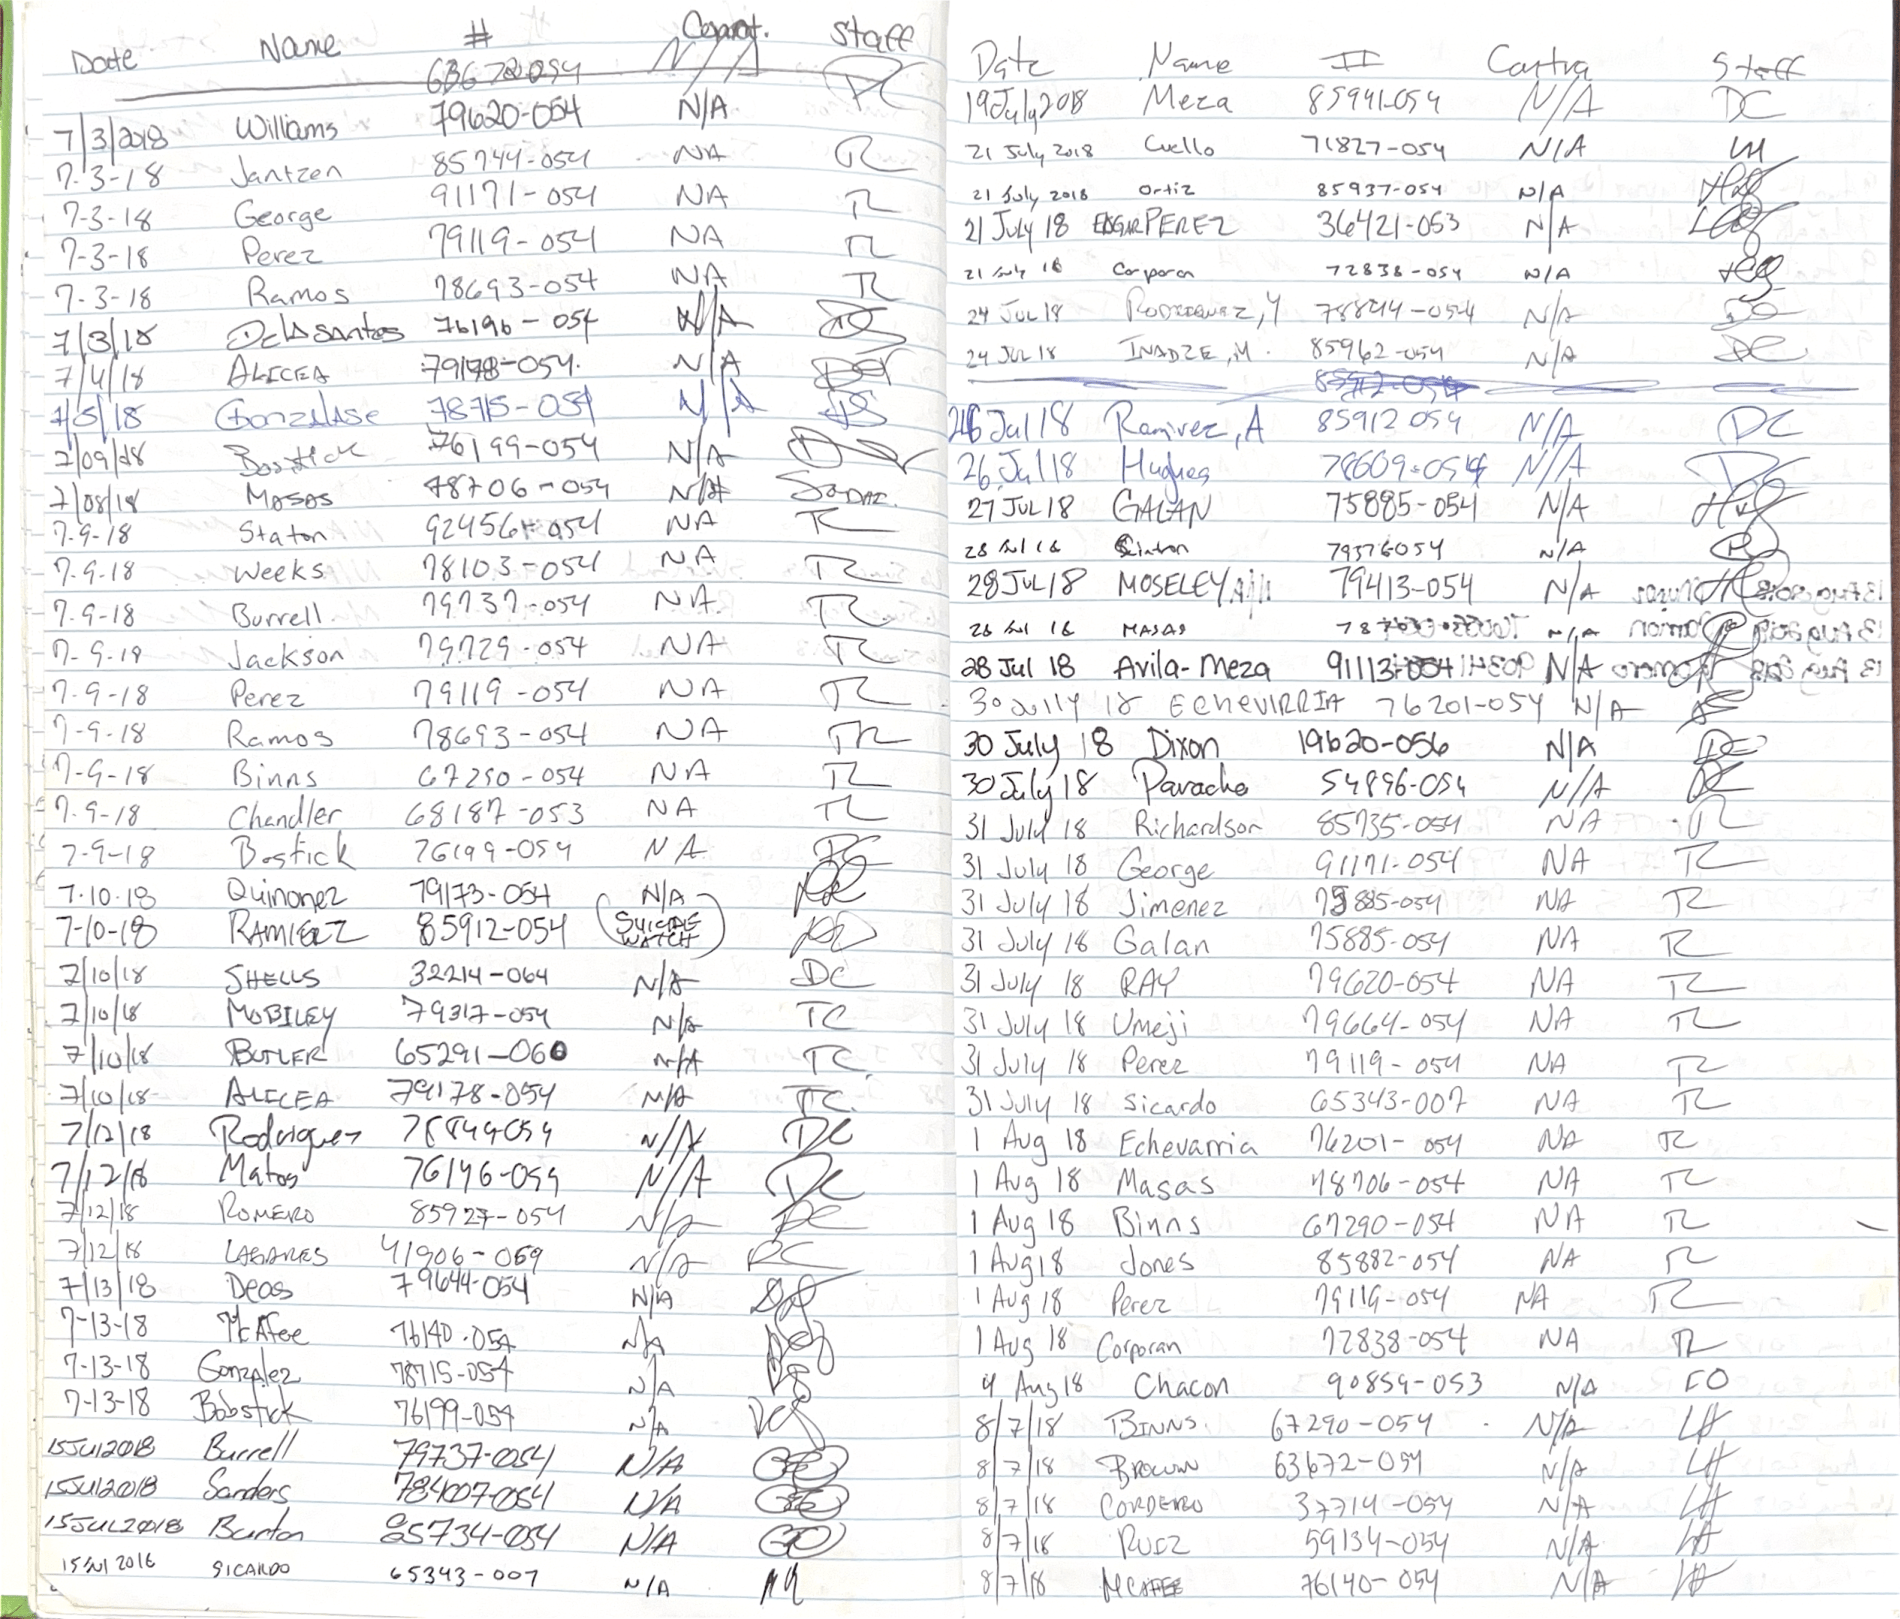 Date Name # Staff
63672-054 N/A DC
7/3/2018 Williams 79620-054 N/A
7-3-18 Jantzen 85744-054 NA TC
7-3-18 George 91171-054 NA TC
7-3-18 Perez 79119-054 NA TC
7-3-18 Ramos 78693-054 NA TC
7/3/18 DeLASantos 76196-054 N/A
7/4/18 ALICEA 79178-054. N/A
7/5/18 GONZALASE 78715-054 N/A
7/09/18 Bostick 76199-054 N/A
7/08/18 MASAS 78706-054 N/A
7-9-18 Staton 92456-054 NA TC
7-9-18 Weeks 78103-054 NA TC
7-9-18 Burrell 79737-054 NA. TC
7-9-18 Jackson 79729-054 NA TC
7-9-18 Perez 79119-054 NA TC
7-9-18 Ramos 78693-054 NA TC
7-9-18 Binns 67290-054 NA TC
7-9-18 Chandler 68187-053 NA TC
7-9-18 Bostick 76199-054 NA
7-10-18 Quinonez 79173-054 N/A
7-10-18 RAMIREZ 85912-054 SUICIDE WATCH
7/10/18 SHELLS 32214-064 N/A DC
7/10/18 MOBILEY 79317-054 N/A TC
7/10/18 BUTLER 65291-060 N/A TC
7/10/18 ALICEA 79178-054 N/A TC
7/12/18 Rodriguez 78844-054 N/A DC
7/12/18 Matos 76146-054 N/A DC
7/12/18 ROMERO 85927-054 N/A DC
7/12/18 LABARES 41906-059 N/A
7/13/18 Deas 79644-054 N/A
7-13-18 McAfee 76140-054 N/A
7-13-18 Gonzalez 78715-054 N/A
7-13-18 Bobstick 76199-054 N/A
15Jul2018 Burrell 79737-054 N/A
15Jul2018 Sanders 78407-054 N/A
15JUL2018 Burton 85734-054 N/A
15 Jul 2016 SICARDO 65343-007 N/A
Date Name # Contra Staff
19July2018 Meza 85941-054 N/A DC
21 July 2018 Cuello 71827-054 N/A
21 July 2018 Ortiz 85937-054 N/A
21 July 18 EDGAR PEREZ 36421-053 N/A
21 July 18 Corporan 72838-054 N/A
24 Jul 18 RODRIGUEZ, Y 78844-054 N/A
24 JUL 18 INADZE, M. 85962-054 N/A DC
85912-054
26 Jul 18 Ramirez, A 85912 054 N/A DC
26 Jul 18 Hughes 78609-054 N/A DC
27 JUL 18 GALAN 75885-054 N/A
28 Jul 18 Cintron 79376054 N/A
28 JUL 18 MOSELEY 79413-054 N/A
28 Jul 18 MASAS N/A
28 Jul 18 Avila-Meza 91113-054 N/A
30 July 18 ECHEVIRRIA 76201-054 N/A
30 July 18 Dixon 19620-056 N/A DC
30 July 18 Parache 54896-054 N/A DC
31 July 18 Richardson 85735-054 NA TC
31 July 18 George 91171-054 NA TC
31 July 18 Jimenez 75885-054 NA TC
31 July 18 Galan 75885-054 NA TC
31 July 18 RAY 79620-054 NA TC
31 July 18 Umeji 79664-054 NA TC
31 July 18 Perez 79119-054 NA TC
31 July 18 Sicardo 65343-007 NA TC
1 Aug 18 Echevarria 76201-054 NA TC
1 Aug 18 Masas 78706-054 NA TC
1 Aug 18 Binns 67290-054 NA TC
1 Aug 18 Jones 85882-054 NA TC
1 Aug 18 Perez 79119-054 NA TC
1 Aug 18 Corporan 72838-054 NA TC
4 Aug 18 Chacon 90859-053 N/A
8/7/18 BINNS 67290-054 N/A LH
8/7/18 BROWN 63672-054 N/A LH
8/7/18 CORDERO 37714-054 N/A LH
8/7/18 RUIZ 59134-054 N/A LH
8/7/18 MCAFEE 76140-054 N/A LH